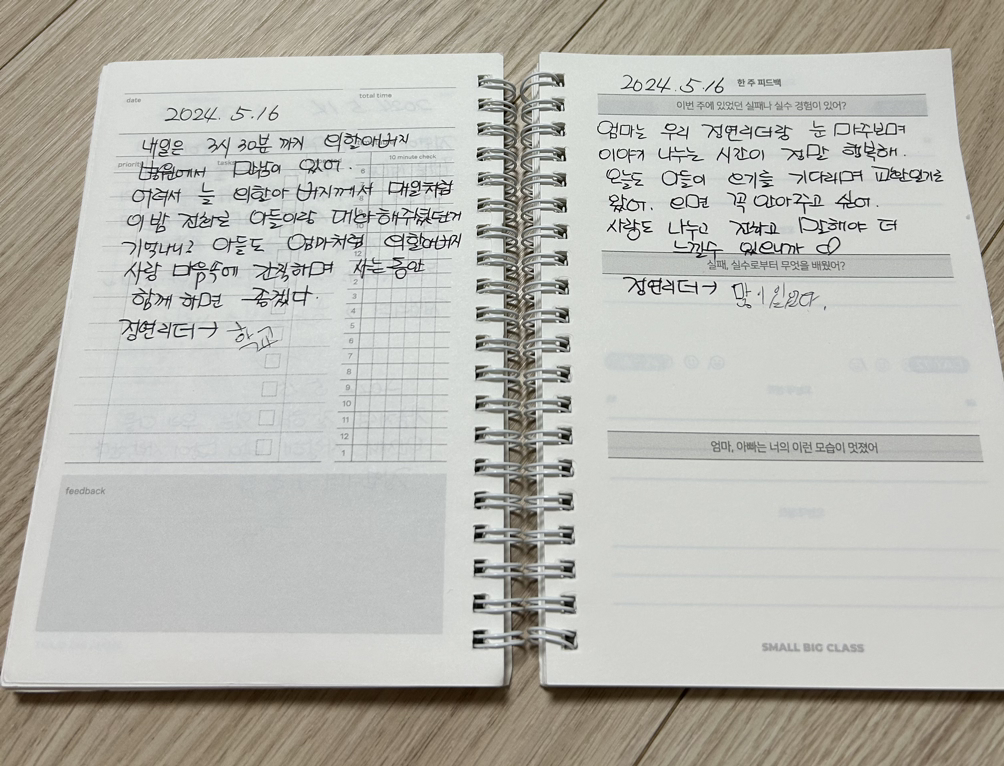 date
total time
2024. 5. 16
내일은 3시 30분 까지 외할아버지
priority
task
10 minute check
병원에서 만남이 있어.
어려서 늘 외할아버지께서 매일처럼
이 밤 전화로 아들이랑 대화해주셨던거
기억나니? 아들도 엄마처럼 외할아버지
사랑 마음속에 간직하며 사는 동안
함께 하면 좋겠다.
정연리더→ 학교
6
2
3
4
5
6
7
8
9
10
11
12
1
feedback
2024. 5. 16 한 주 피드백
이번 주에 있었던 실패나 실수 경험이 있어?
엄마는 우리 정연리더랑 눈 마주보며
이야기 나누는 시간이 정말 행복해.
오늘도 아들이 오기를 기다리며
왔어. 오면 꼭 안아주고 싶어.
사랑도 나누고 전하고 말해야 더
느낄수 있으니까
실패, 실수로부터 무엇을 배웠어?
정연리더→ 많이 있었다.
엄마, 아빠는 너의 이런 모습이 멋졌어
SMALL BIG CLASS